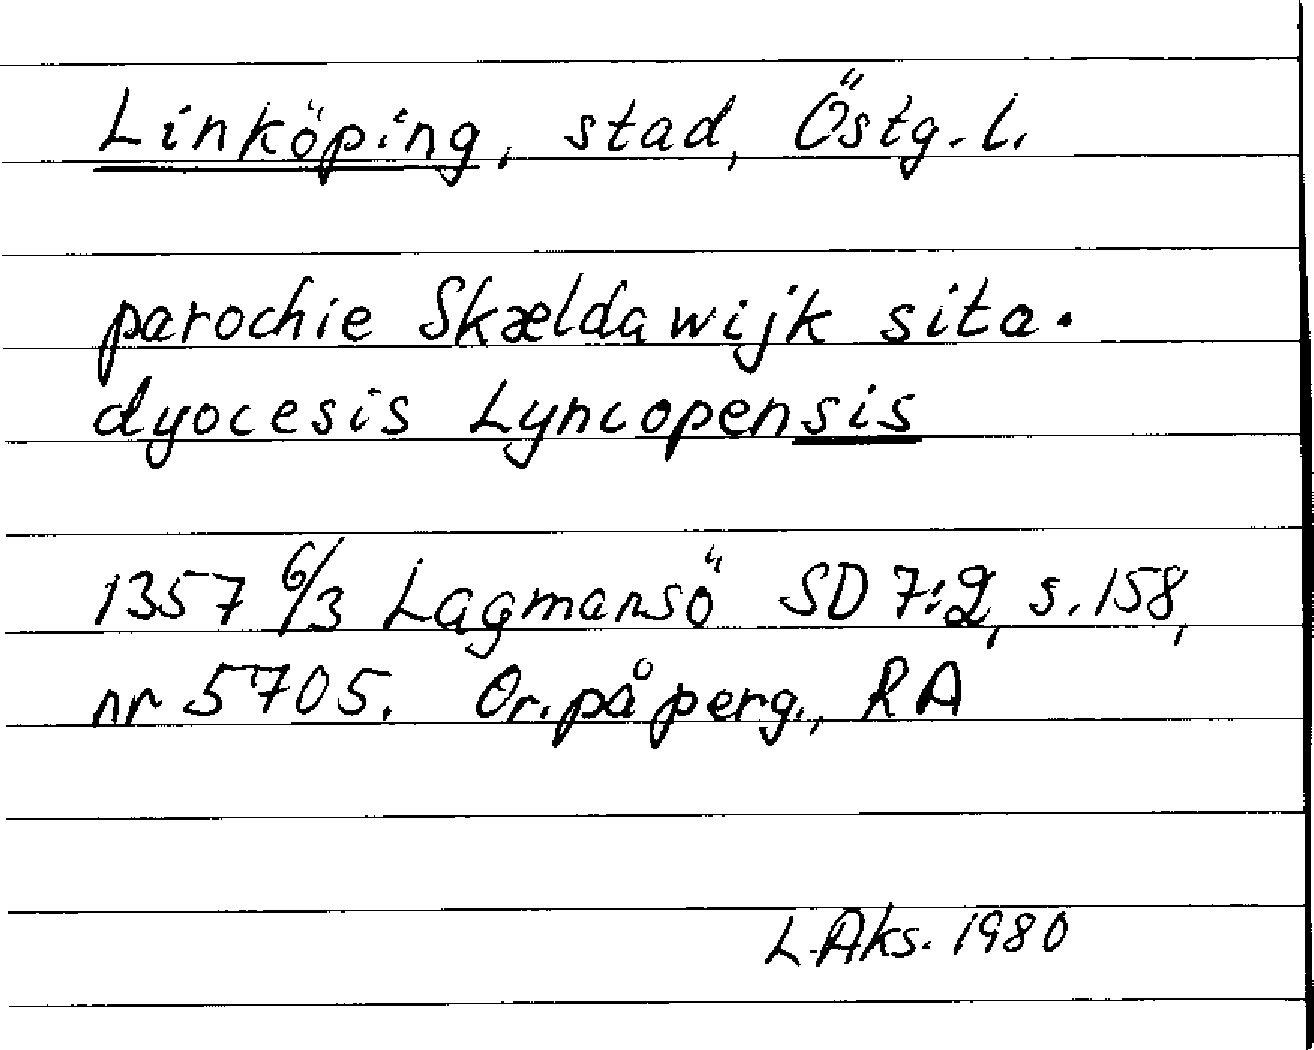 Linköping, stad, Östg. l.
parochie Skældawijk sita.
dyocesis Lyncopensis
1357 6/3 Lagmansö SD 7:2, s. 158,
nr 5705. Or. på perg., RA
L. Aks. 1980